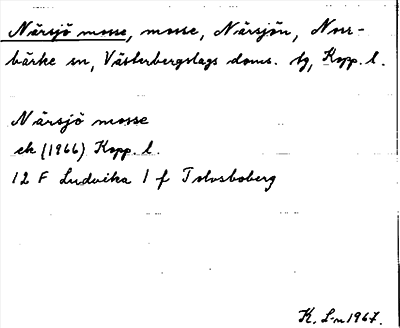 Närsjö mosse, mosse, Närsjön, Norr-
bärke sn, Västerbergslags doms. tg, Kopp. l.
Närsjö mosse
ek (1966) Kopp. l.
12 F Ludvika 1 f
K. L-n 1967.